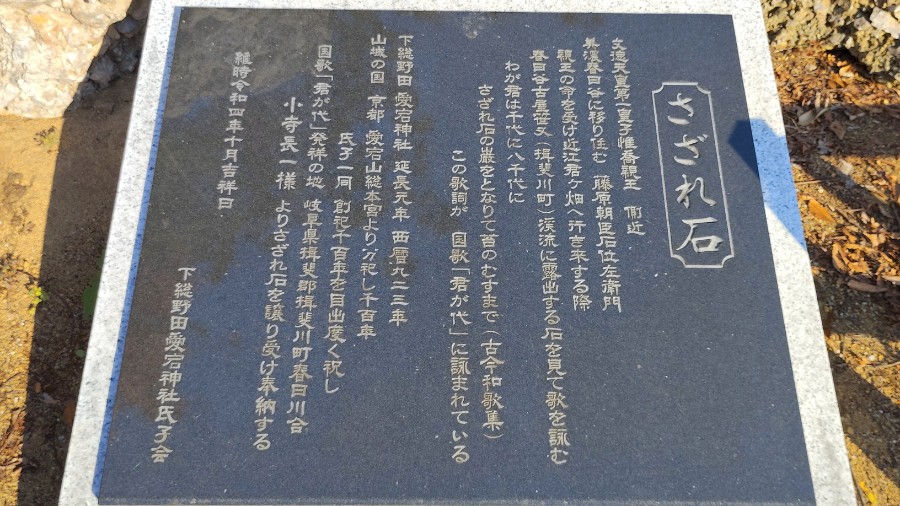 さざれ石
文徳天皇第一皇子惟喬親王　側近
美濃春日谷に移り住む　藤原朝臣石位左衛門
親王の命を受け近江君ヶ畑へ行き来する際
春日谷古屋笹又（揖斐川町）渓流に露出する石を見て歌を詠む
わが君は千代に八千代に
さざれ石の巌をとなりて苔のむすまで（古今和歌集）
この歌詞が　国歌「君が代」に詠まれている
下総野田 愛宕神社　延長元年　西暦九二三年
山城の国　京都　愛宕山総本宮より分祀し千百年
氏子一同　創祀千百年を目出度く祝し
国歌「君が代」発祥の地　岐阜県揖斐郡揖斐川町春日川合
小寺長一様　よりさざれ石を譲り受け奉納する
維時令和四年十月吉祥日
下総野田愛宕神社氏子会